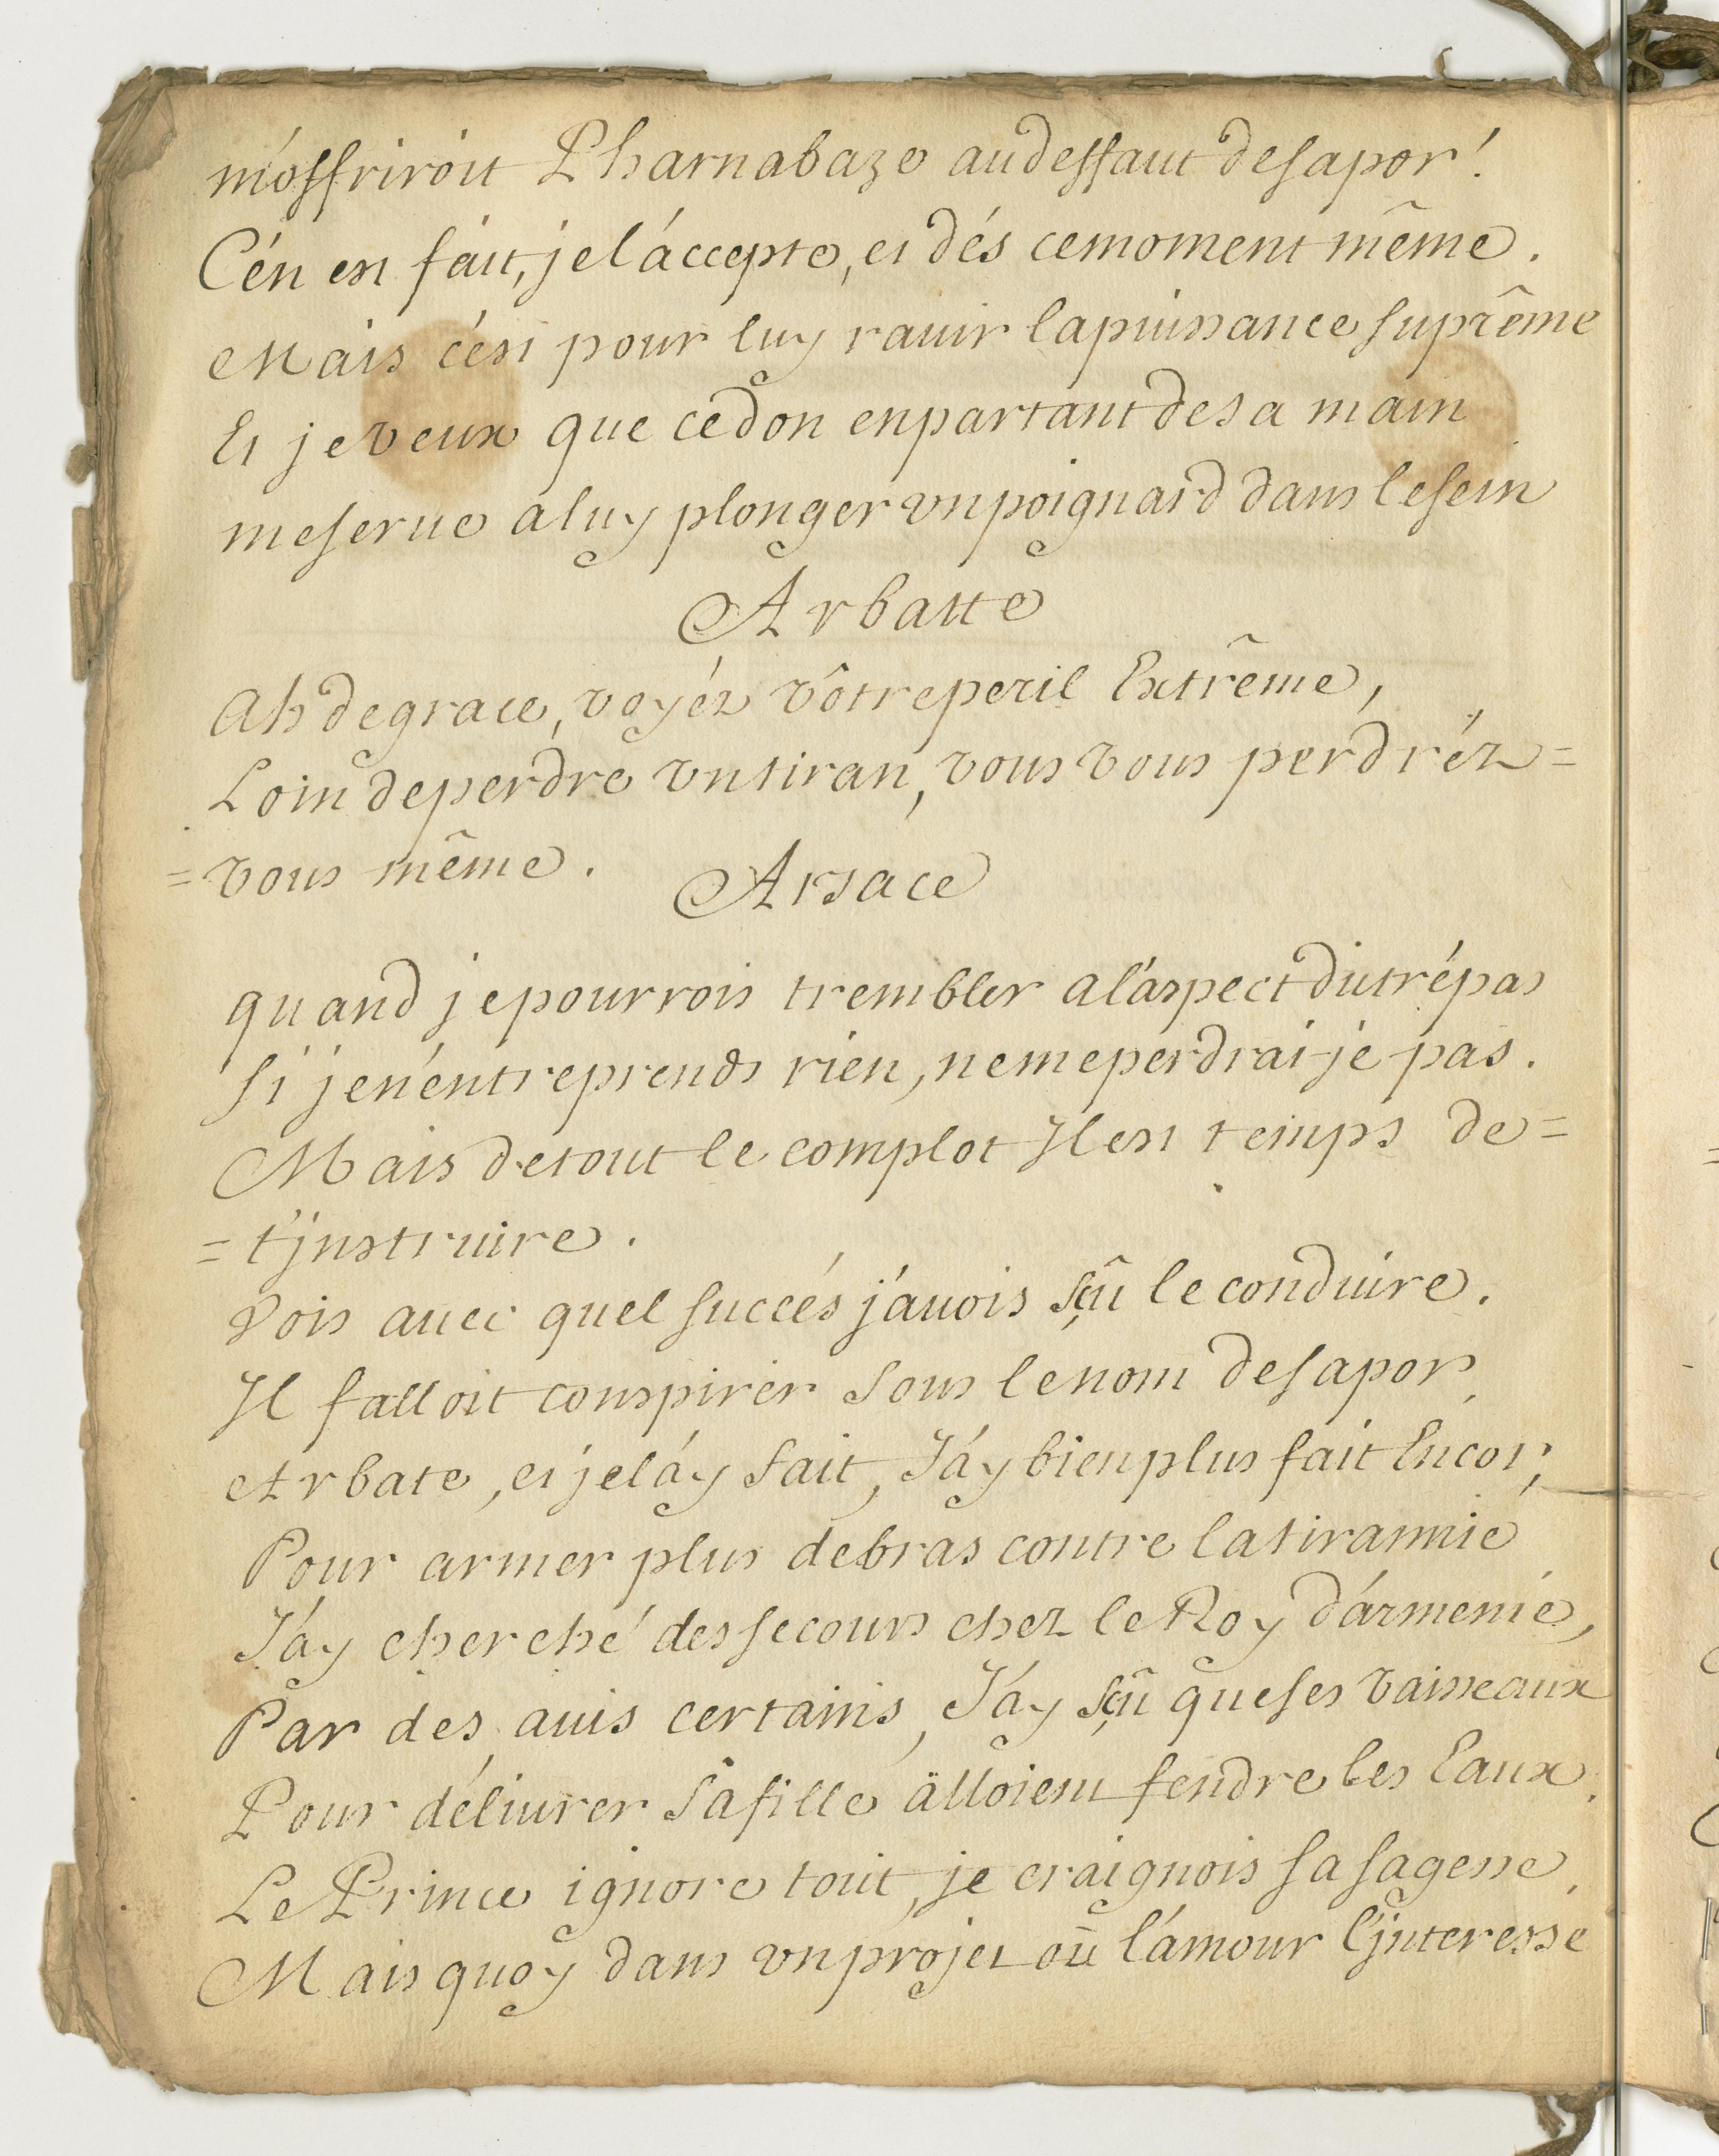 m'offriroit Pharnabaze au deffaut de sapor!
C'én est fait, je l'áccepte, et dés ce moment même.
Mais c'ést pour luy rauir la puissance suprême
Et je veux que ce don en partant de sa main
me serue a luy plonger vn poignard dans le sein
Arbatte
Ah de grace, voyéz vôtre peril Extrême,
Loin de perdre vn tiran, vous vous perdréz=
=vous même.
Arsace
quand je pourrois trembler a l'áspect du trépas
si je n'éntreprends rien, ne me perdrai-je pas.
Mais de tout le complot Il est temps de=
=t'jnstruire.
Vois auec quel succés j'áuois sçû le conduire.
Il falloit conspirer sous le nom de sapor,
Arbate, et je l'áy fait, J'áy bien plus fait Encor;
Pour armer plus de bras contre la tirannie
J'áy cherché des secours chez le Roy d'ármenie,
Par des auis certains, J'áy sçû que ses vaisseaux
Pour déliurer sa fille alloient fendre les Eaux.
Le Prince ignore tout, je craignois sa sagesse,
Mais quoy dans vn projet où l'ámour l'jnteresse